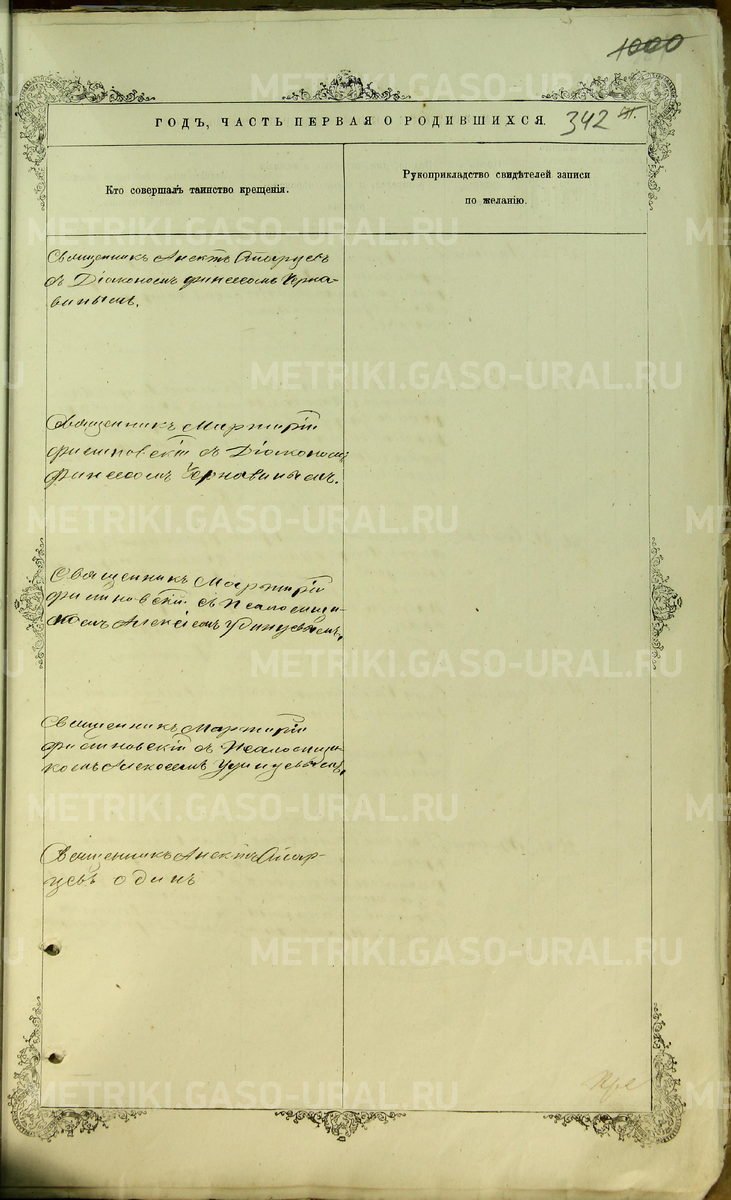 1000
ГОДЪ, ЧАСТЬ ПЕРВАЯ О РОДИВШИХСЯ.
342
Кто совершалъ таинство крещенія.
Рукоприкладство свидѣтелей записи
по желанію.
Священникъ
съ Діакономъ Финеесомъ Черна-
винымъ.
Священникъ Мартирій
Филиповскій съ Діакономъ
Финеесомъ Чернавинымъ.
Священникъ Мартирій
Филиновскій съ Псаломщи-
комъ Алексіемъ
Священникъ Мартирій
Филиновскій съ Псаломщи-
комъ
Священникъ
одинъ
METRIKI.GASO-URAL.RU